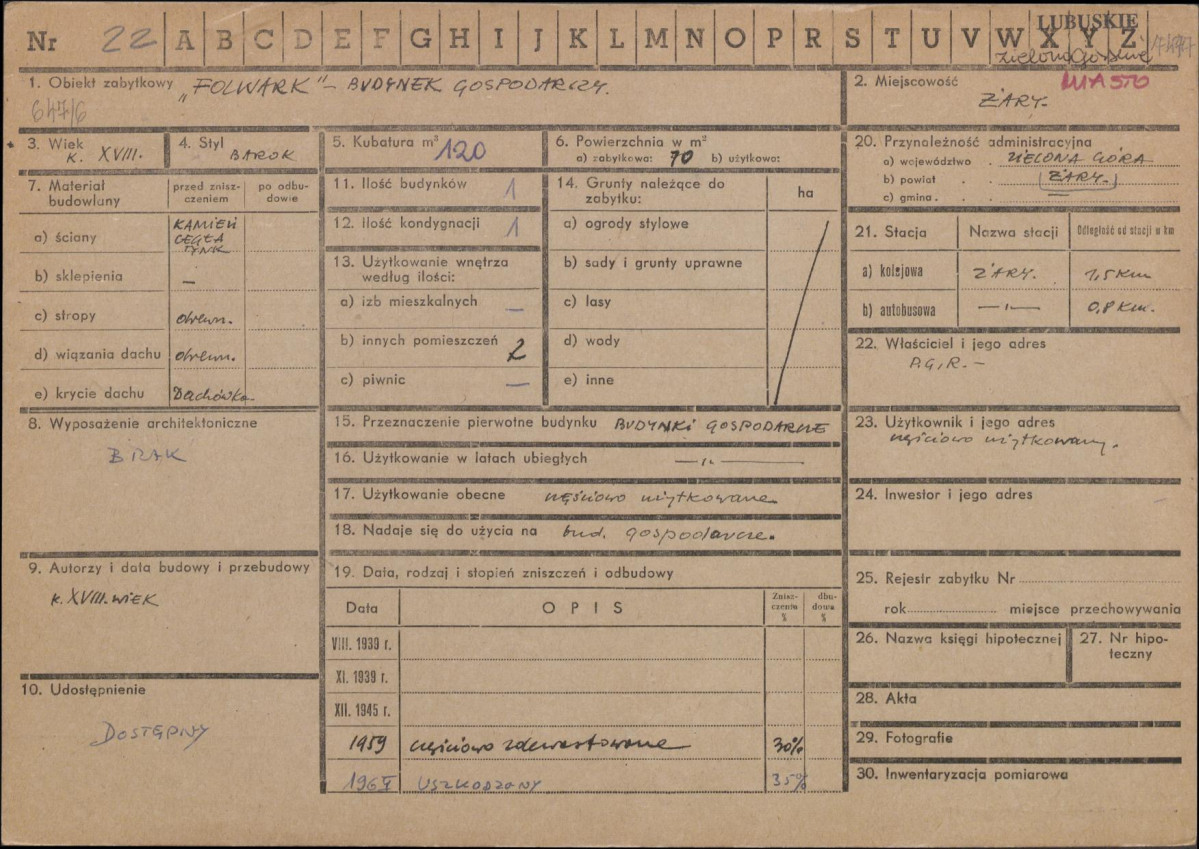 LUBUSKIE
Nr 22 A B C D E F G H I J K L M N O P R S T U V W X Y Z
zielonogórskie
1. Obiekt zabytkowy „FOLWARK" – BUDYNEK GOSPODARCZY.
647/6
2. Miejscowość MIASTO
ŻARY.
3. Wiek
K. XVIII.
4. Styl
BAROK
5. Kubatura m³ 120
6. Powierzchnia w m²
a) zabytkowa: 70 b) użytkowa:
20. Przynależność administracyjna
a) województwo ZIELONA GÓRA
b) powiat ŻARY.
c) gmina —
7. Materiał budowlany
przed zniszczeniem
po odbudowie
a) ściany KAMIEŃ
CEGŁA
TYNK
b) sklepienia —
c) stropy drewn.
d) wiązania dachu drewn.
e) krycie dachu Dachówka
11. Ilość budynków 1
12. Ilość kondygnacji 1
13. Użytkowanie wnętrza
według ilości:
a) izb mieszkalnych —
b) innych pomieszczeń 2
c) piwnic —
14. Grunty należące do
zabytku: ha
a) ogrody stylowe
b) sady i grunty uprawne
c) lasy
d) wody
e) inne
21. Stacja Nazwa stacji Odległość od stacji w km
a) kolejowa ŻARY. 1,5 km
b) autobusowa —„— 0,8 km.
22. Właściciel i jego adres
P.G.R. –
8. Wyposażenie architektoniczne
BRAK
15. Przeznaczenie pierwotne budynku BUDYNKI GOSPODARCZE
16. Użytkowanie w latach ubiegłych —„—
17. Użytkowanie obecne częściowo użytkowane
18. Nadaje się do użycia na bud. gospodarcze.
23. Użytkownik i jego adres
częściowo użytkowany.
24. Inwestor i jego adres
9. Autorzy i data budowy i przebudowy
K. XVIII. WIEK
19. Data, rodzaj i stopień zniszczeń i odbudowy
Data OPIS Zniszczenia % dbudowa %
VIII. 1939 r.
XI. 1939 r.
XII. 1945 r.
1959 częściowo zdewastowane 30%
USZKODZONY 35%
10. Udostępnienie
DOSTĘPNY
25. Rejestr zabytku Nr
rok miejsce przechowywania
26. Nazwa księgi hipotecznej
27. Nr hipoteczny
28. Akta
29. Fotografie
30. Inwentaryzacja pomiarowa